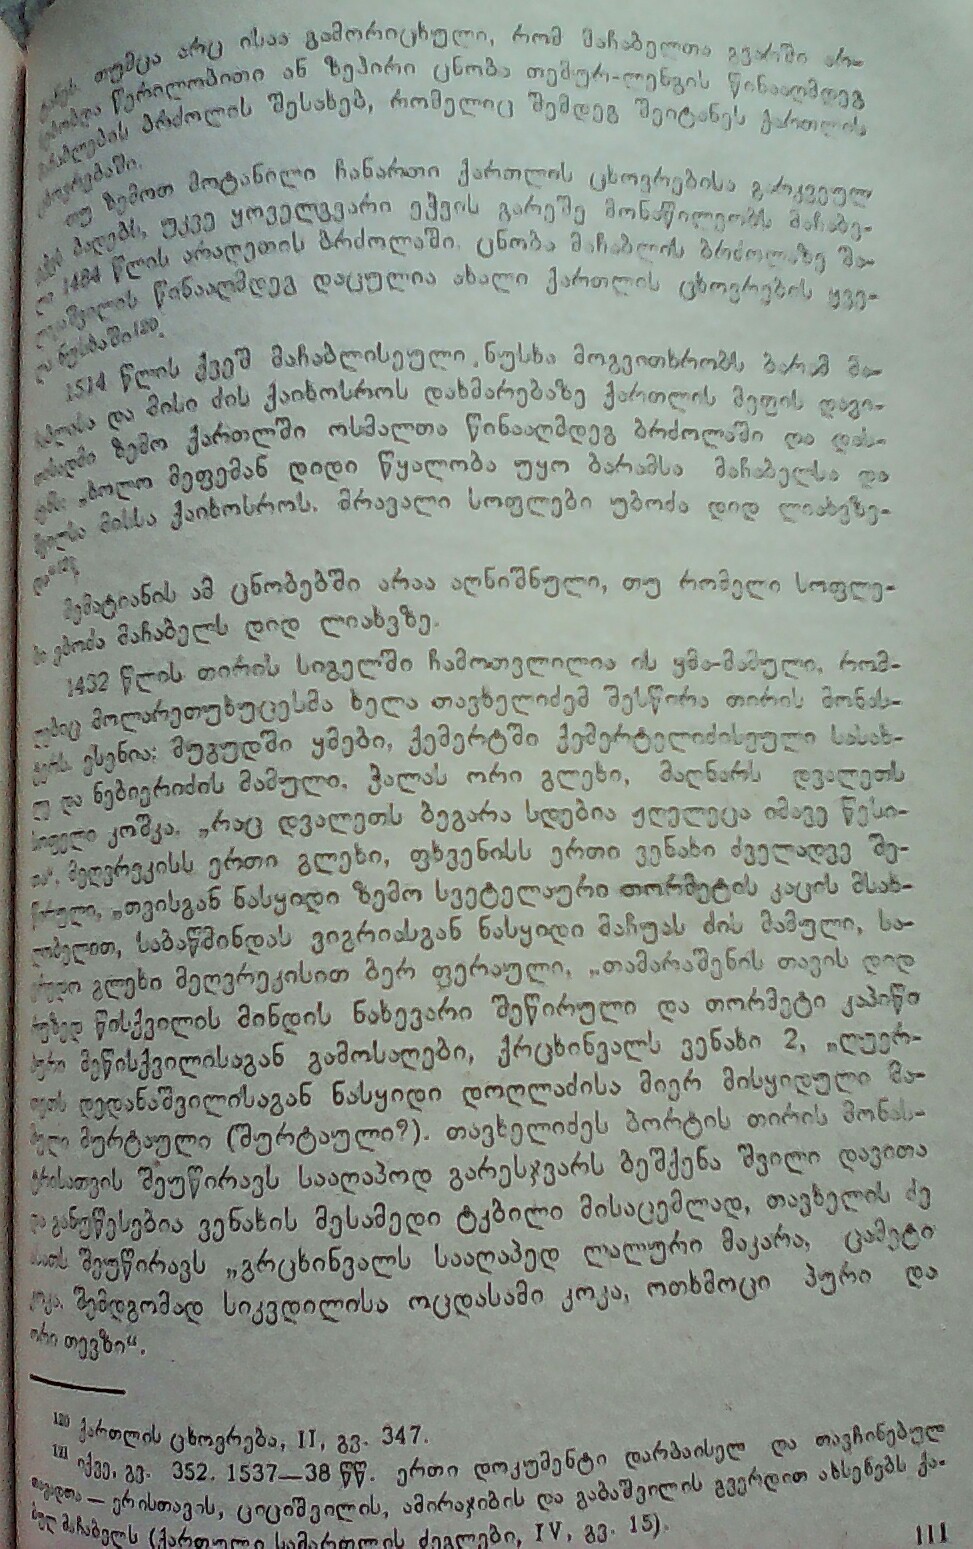 თუმცა არც ისაა გამორიცხული, რომ მაჩაბელთა გვარში არ-
წერილობითი ან ზეპირი ცნობა თემურ-ლენგის წინააღმდეგ
ბრძოლის შესახებ, რომელიც შემდეგ შეიტანეს ქართლის
ცხოვრებაში.
თუ ზემოთ მოტანილი ჩანართი ქართლის ცხოვრებისა გარკვეულ
ბადებს, უკვე ყოველგვარი ეჭვის გარეშე მონაწილეობს მაჩაბე-
ლი 1484 წლის არადეთის ბრძოლაში. ცნობა მაჩაბლის ბრძოლაზე
წინააღმდეგ დაცულია ახალი ქართლის ცხოვრების ყვე-
ლა ნუსხაში¹²⁰.
1514 წლის ქვეშ მაჩაბლისეული ნუსხა მოგვითხრობს ბარამ მა-
და მისი ძის ქაიხოსროს დახმარებაზე ქართლის მეფის დავი-
ზემო ქართლში ოსმალთა წინააღმდეგ ბრძოლაში და დას-
„ხოლო მეფემან დიდი წყალობა უყო ბარამსა მაჩაბელსა და
მისსა ქაიხოსროს, მრავალი სოფლები უბოძა დიდ ლიახვზე-
და“¹²¹.
მემატიანის ამ ცნობებში არაა აღნიშნული, თუ რომელი სოფლე-
ბი ებოძა მაჩაბელს დიდ ლიახვზე.
1432 წლის თირის სიგელში ჩამოთვლილია ის ყმა-მამული, რომ-
ლებიც მოლარეთუხუცესმა ხელა თავხელიძემ შესწირა თირის მონას-
ტერს. ესენია: მუგუდში ყმები, ქემერტში ქემერტელიძისეული სასახ-
ლე და ნებიერიძის მამული, ჭალას ორი გლეხი, მაღნარს დვალეთს
სოფელი კოშკა, „რაც დვალეთს ბეგარა სდებია ჟღელეცა იმავე წესი-
თა“, მეღვრეკისს ერთი გლეხი, ფხვენისს ერთი ვენახი ძველადვე შე-
წირული, „თვისგან ნასყიდი ზემო სვეტელაური თორმეტის კაცის მსახ-
ლობელით, საბაწმინდას ვიგრიასგან ნასყიდი მაჩუას ძის მამული, სა-
გლეხი მეღვრეკისით ბერ ფერაული, „თამარაშენის თავის დიდ
წისქვილის მინდის ნახევარი შეწირული და თორმეტი კაპიწი
პური მეწისქვილისაგან გამოსაღები, ქრცხინვალს ვენახი 2, „ღუერ-
თეთს დედანაშვილისაგან ნასყიდი დოღლაძისა მიერ მისყიდული მა-
მული მურტაული (შურტაული?). თავხელიძეს ბორტის თირის მონას-
ტრისათვის შეუწირავს სააღაპოდ გარესჯვარს ბეშქენა შვილი დავითა
და განუწესებია ვენახის მესამედი ტკბილი მისაცემლად, თავხელის ძე
შეუწირავს „გრცხინვალს სააღაპედ ლალური მაკარა, ცამეტი
კოკა, შემდგომად სიკვდილისა ოცდასამი კოკა, ოთხმოცი პური და
ორი თევზი“.
¹²⁰ ქართლის ცხოვრება, II, გვ. 347.
¹²¹ იქვე, გვ. 352. 1537—38 წწ. ერთი დოკუმენტი დარბაისელ და თავჩინებულ
თავადთა — ერისთავის, ციციშვილის, ამირაჯიბის და გაბაშვილის გვერდით ახსენებს ქა-
მაჩაბელს (ქართული სამართლის ძეგლები, IV, გვ. 15).
111